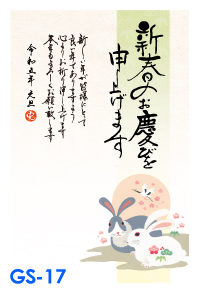 新春の
お慶びを
申し上げます
新しい年が皆様にとって
良い年でありますよう
心よりお祈り申し上げます
本年もよろしくお願い致します
令和五年 元旦
GS-17